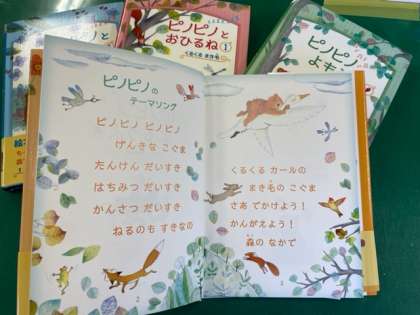 ピノピノと
ピノピノと
おひるね 1
ピノピノ
よもぎ
絵
ピノピノの
テーマソング
ピノピノ ピノピノ
げんきな こぐま
たんけん だいすき
はちみつ だいすき
かんさつ だいすき
ねるのも すきなの
2
くるくる カールの
まき毛の こぐま
さあ でかけよう!
かんがえよう!
森の なかで
3